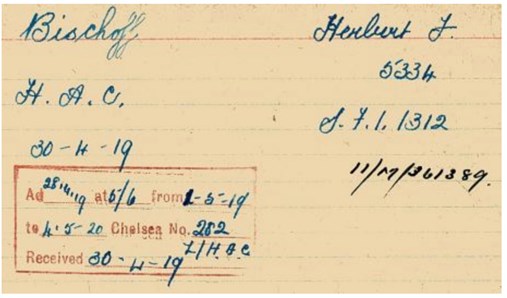 Bischoff
Herbert J.
5334
H. A. C.
S. F. 1. 1312
30-4-19
11/M/361389.
Ad 28.4.19 at 5/6 from 1-5-19
to 4-5-20 Chelsea No. 282
L/H.A.C
Received 30-4-19